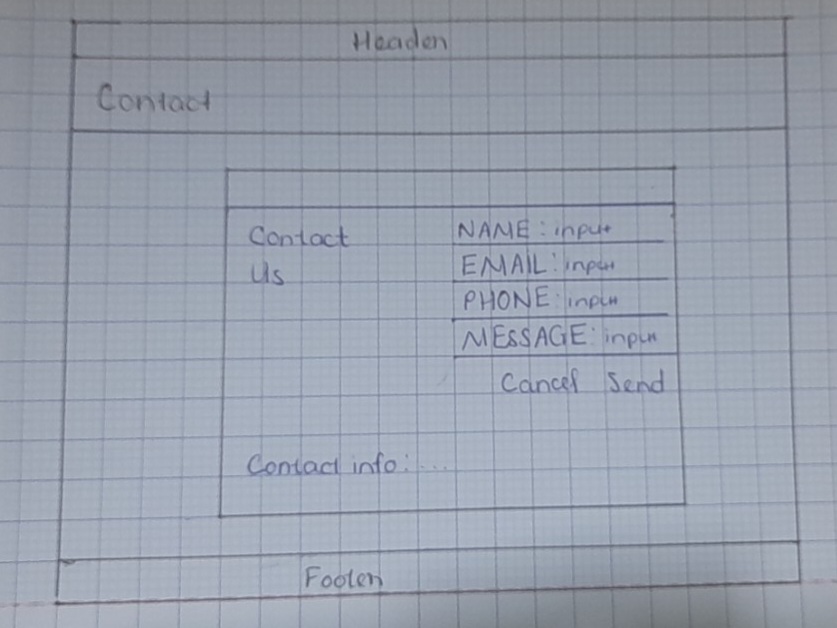 Header
Contact
Contact
Us
NAME: input
EMAIL: input
PHONE: input
MESSAGE: input
Cancel Send
Contact info:....
Footer